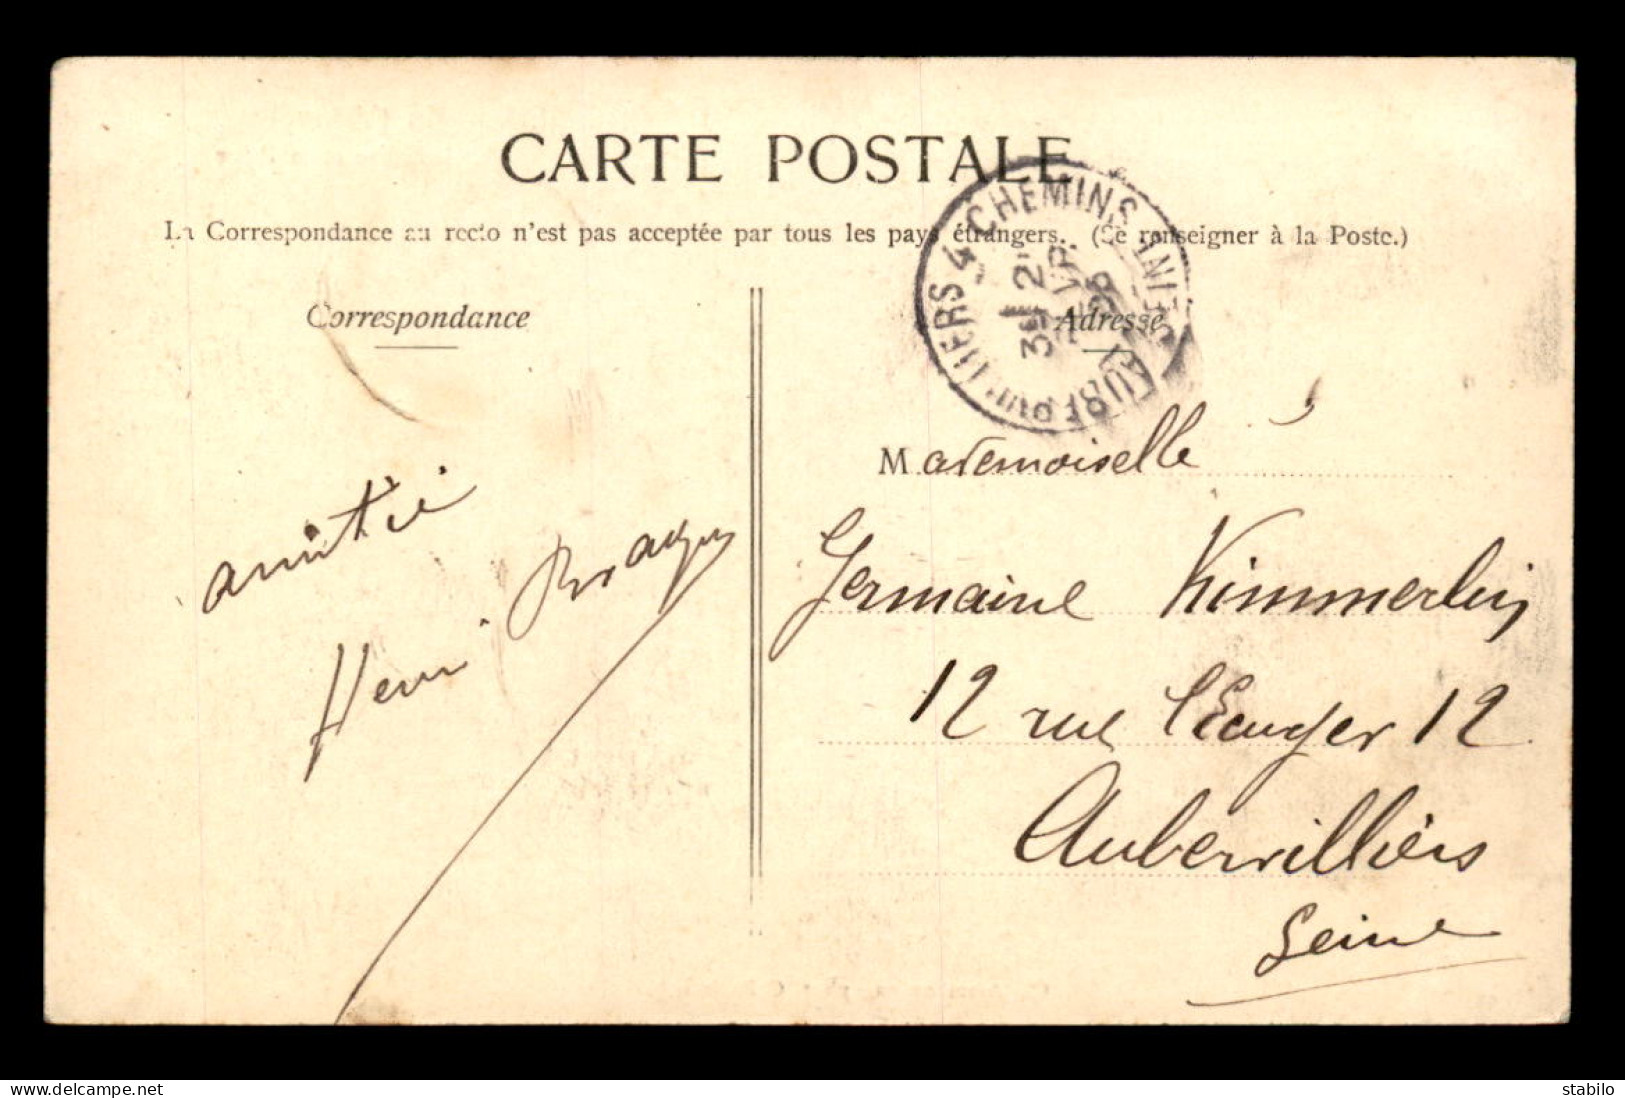 CARTE POSTALE
La Correspondance au recto n'est pas acceptée par tous les pays étrangers. (Se renseigner à la Poste.)
Correspondance
Adresse
4 CHEMINS
amitié
Henri
Mademoiselle
Germaine Kimmerlin
12 rue 12
Aubervilliers
Seine
www.delcampe.net
stabilo